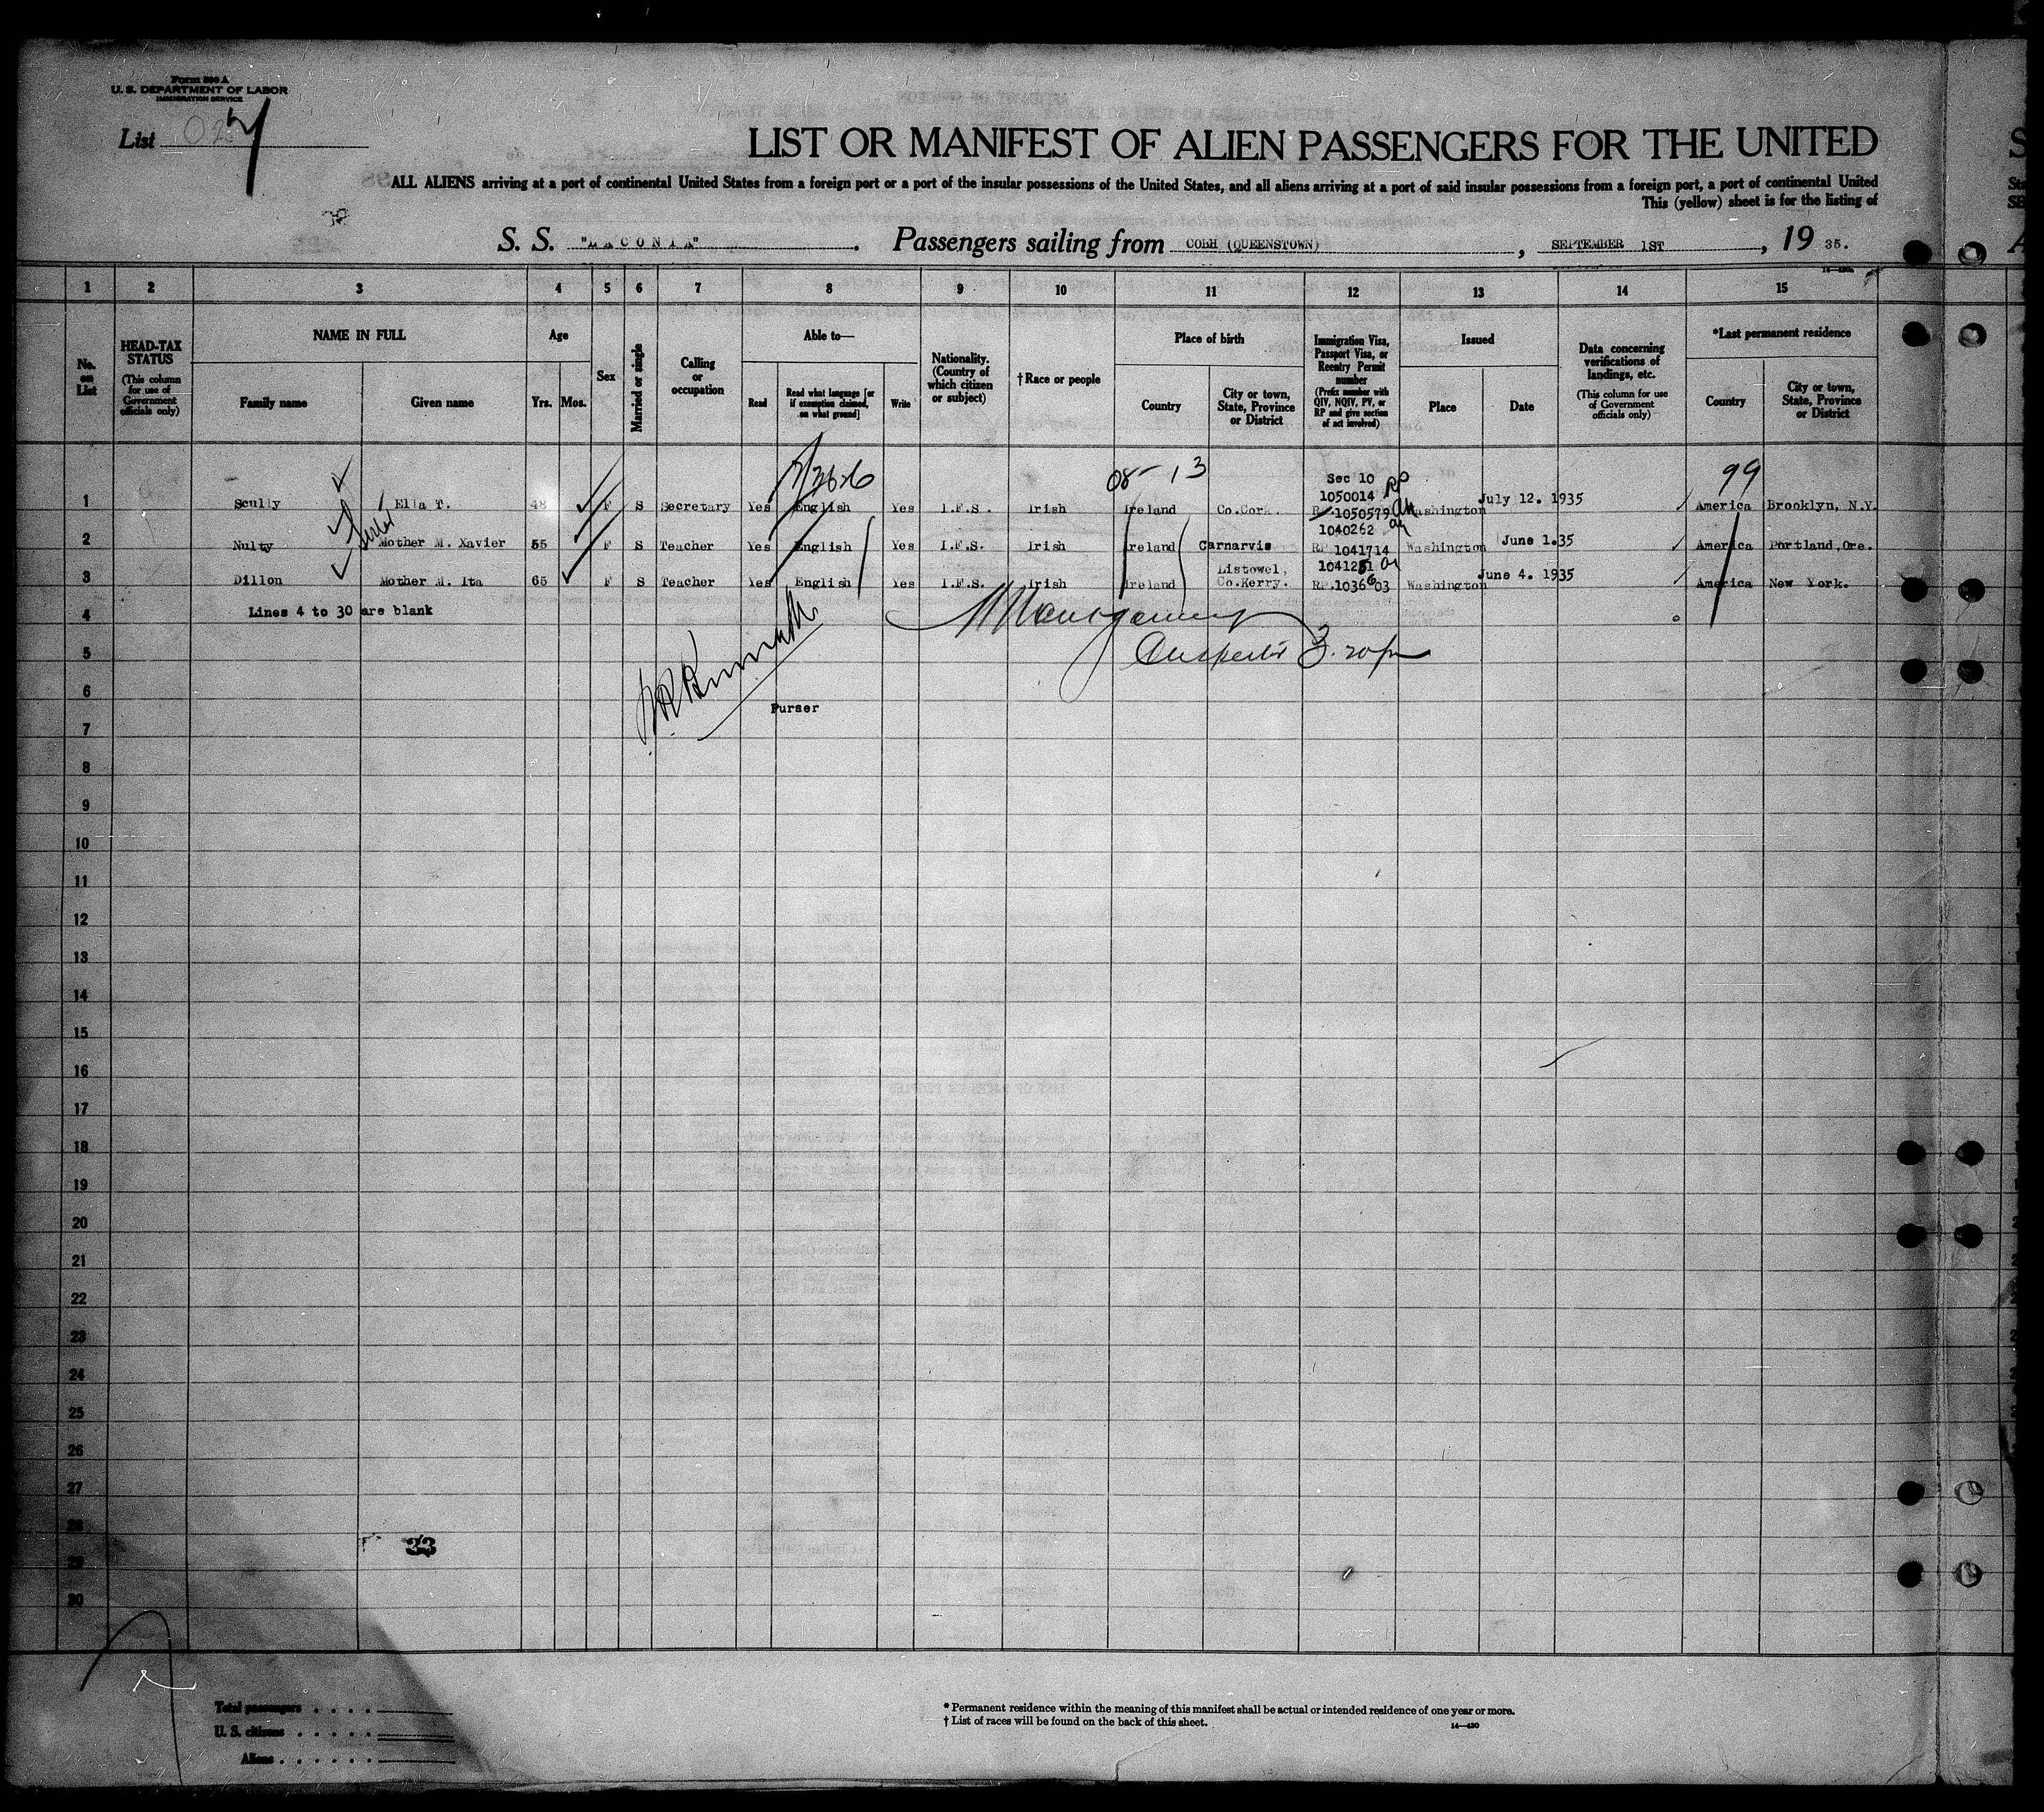 Form 500 A
U. S. DEPARTMENT OF LABOR
IMMIGRATION SERVICE
List 02 7
LIST OR MANIFEST OF ALIEN PASSENGERS FOR THE UNITED
ALL ALIENS arriving at a port of continental United States from a foreign port or a port of the insular possessions of the United States, and all aliens arriving at a port of said insular possessions from a foreign port, a port of continental United
This (yellow) sheet is for the listing of
S. S. "LACONIA". Passengers sailing from COBH (QUEENSTOWN), SEPTEMBER 1ST, 19 35.
1 2 3 4 5 6 7 8 9 10 11 12 13 14 15
No. on List
HEAD-TAX STATUS (This column for use of Government officials only)
NAME IN FULL
Family name
Given name
Age
Yrs. Mos.
Sex
Married or single
Calling or occupation
Able to—
Read
Read what language [or if exemption claimed, on what ground]
Write
Nationality. (Country of which citizen or subject)
†Race or people
Place of birth
Country
City or town, State, Province or District
Immigration Visa, Passport Visa, or Reentry Permit number (Prefix number with QIV, NQIV, PV, or RP and give section of act involved)
Issued
Place
Date
Data concerning verifications of landings, etc. (This column for use of Government officials only)
*Last permanent residence
Country
City or town, State, Province or District
08-13
99
Sec 10
1050014 RP
1 Scully Ella T. 48 F S Secretary Yes English Yes I.F.S. Irish Ireland Co.Cork. RP 1050579 Washington July 12. 1935 America Brooklyn, N.Y.
1040262
2 Nulty Mother M. Xavier 55 F S Teacher Yes English Yes I.F.S. Irish Ireland Carnarvis RP 1041714 Washington June 1.35 America Portland,Ore.
Listowel, 1041281
3 Dillon Mother M. Ita 65 F S Teacher Yes English Yes I.F.S. Irish Ireland Co.Kerry. RP.1036603 Washington June 4. 1935 America New York.
4 Lines 4 to 30 are blank
5
6
Purser
7
8
9
10
11
12
13
14
15
16
17
18
19
20
21
22
23
24
25
26
27
28
33
29
30
Total passengers
U. S. citizens
Aliens
* Permanent residence within the meaning of this manifest shall be actual or intended residence of one year or more.
† List of races will be found on the back of this sheet.
14—430